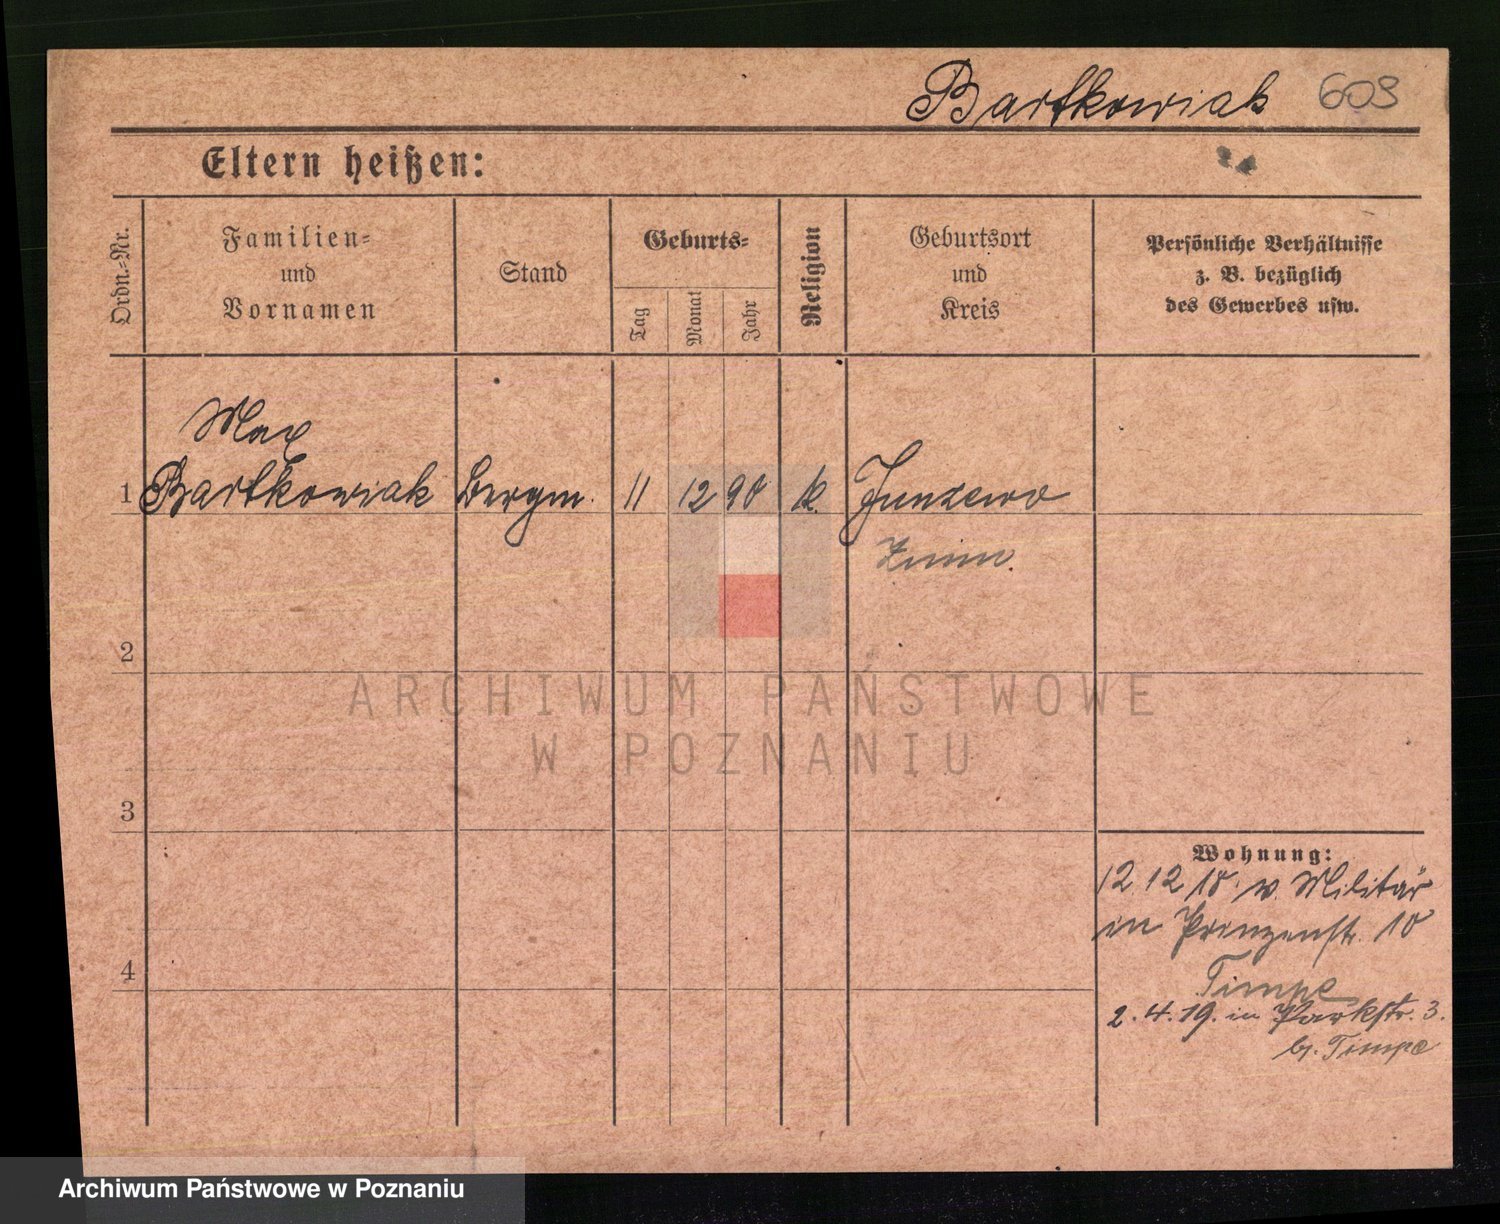 Bartkowiak 603
Eltern heißen:
Ordn.-Nr.
Familien-
und
Vornamen
Stand
Geburts-
Tag
Monat
Jahr
Religion
Geburtsort
und
Kreis
Persönliche Verhältnisse
z. B. bezüglich
des Gewerbes usw.
Max
1 Bartkowiak Bergm. 11 12 90 k. Junzewo
Znin
2
ARCHIWUM PAŃSTWOWE
W POZNANIU
3
Wohnung:
12 12 18. v. Militär
in Prinzenstr. 10
4
Timpe
2.4.19. in Parkstr. 3.
b. Timpe
Archiwum Państwowe w Poznaniu